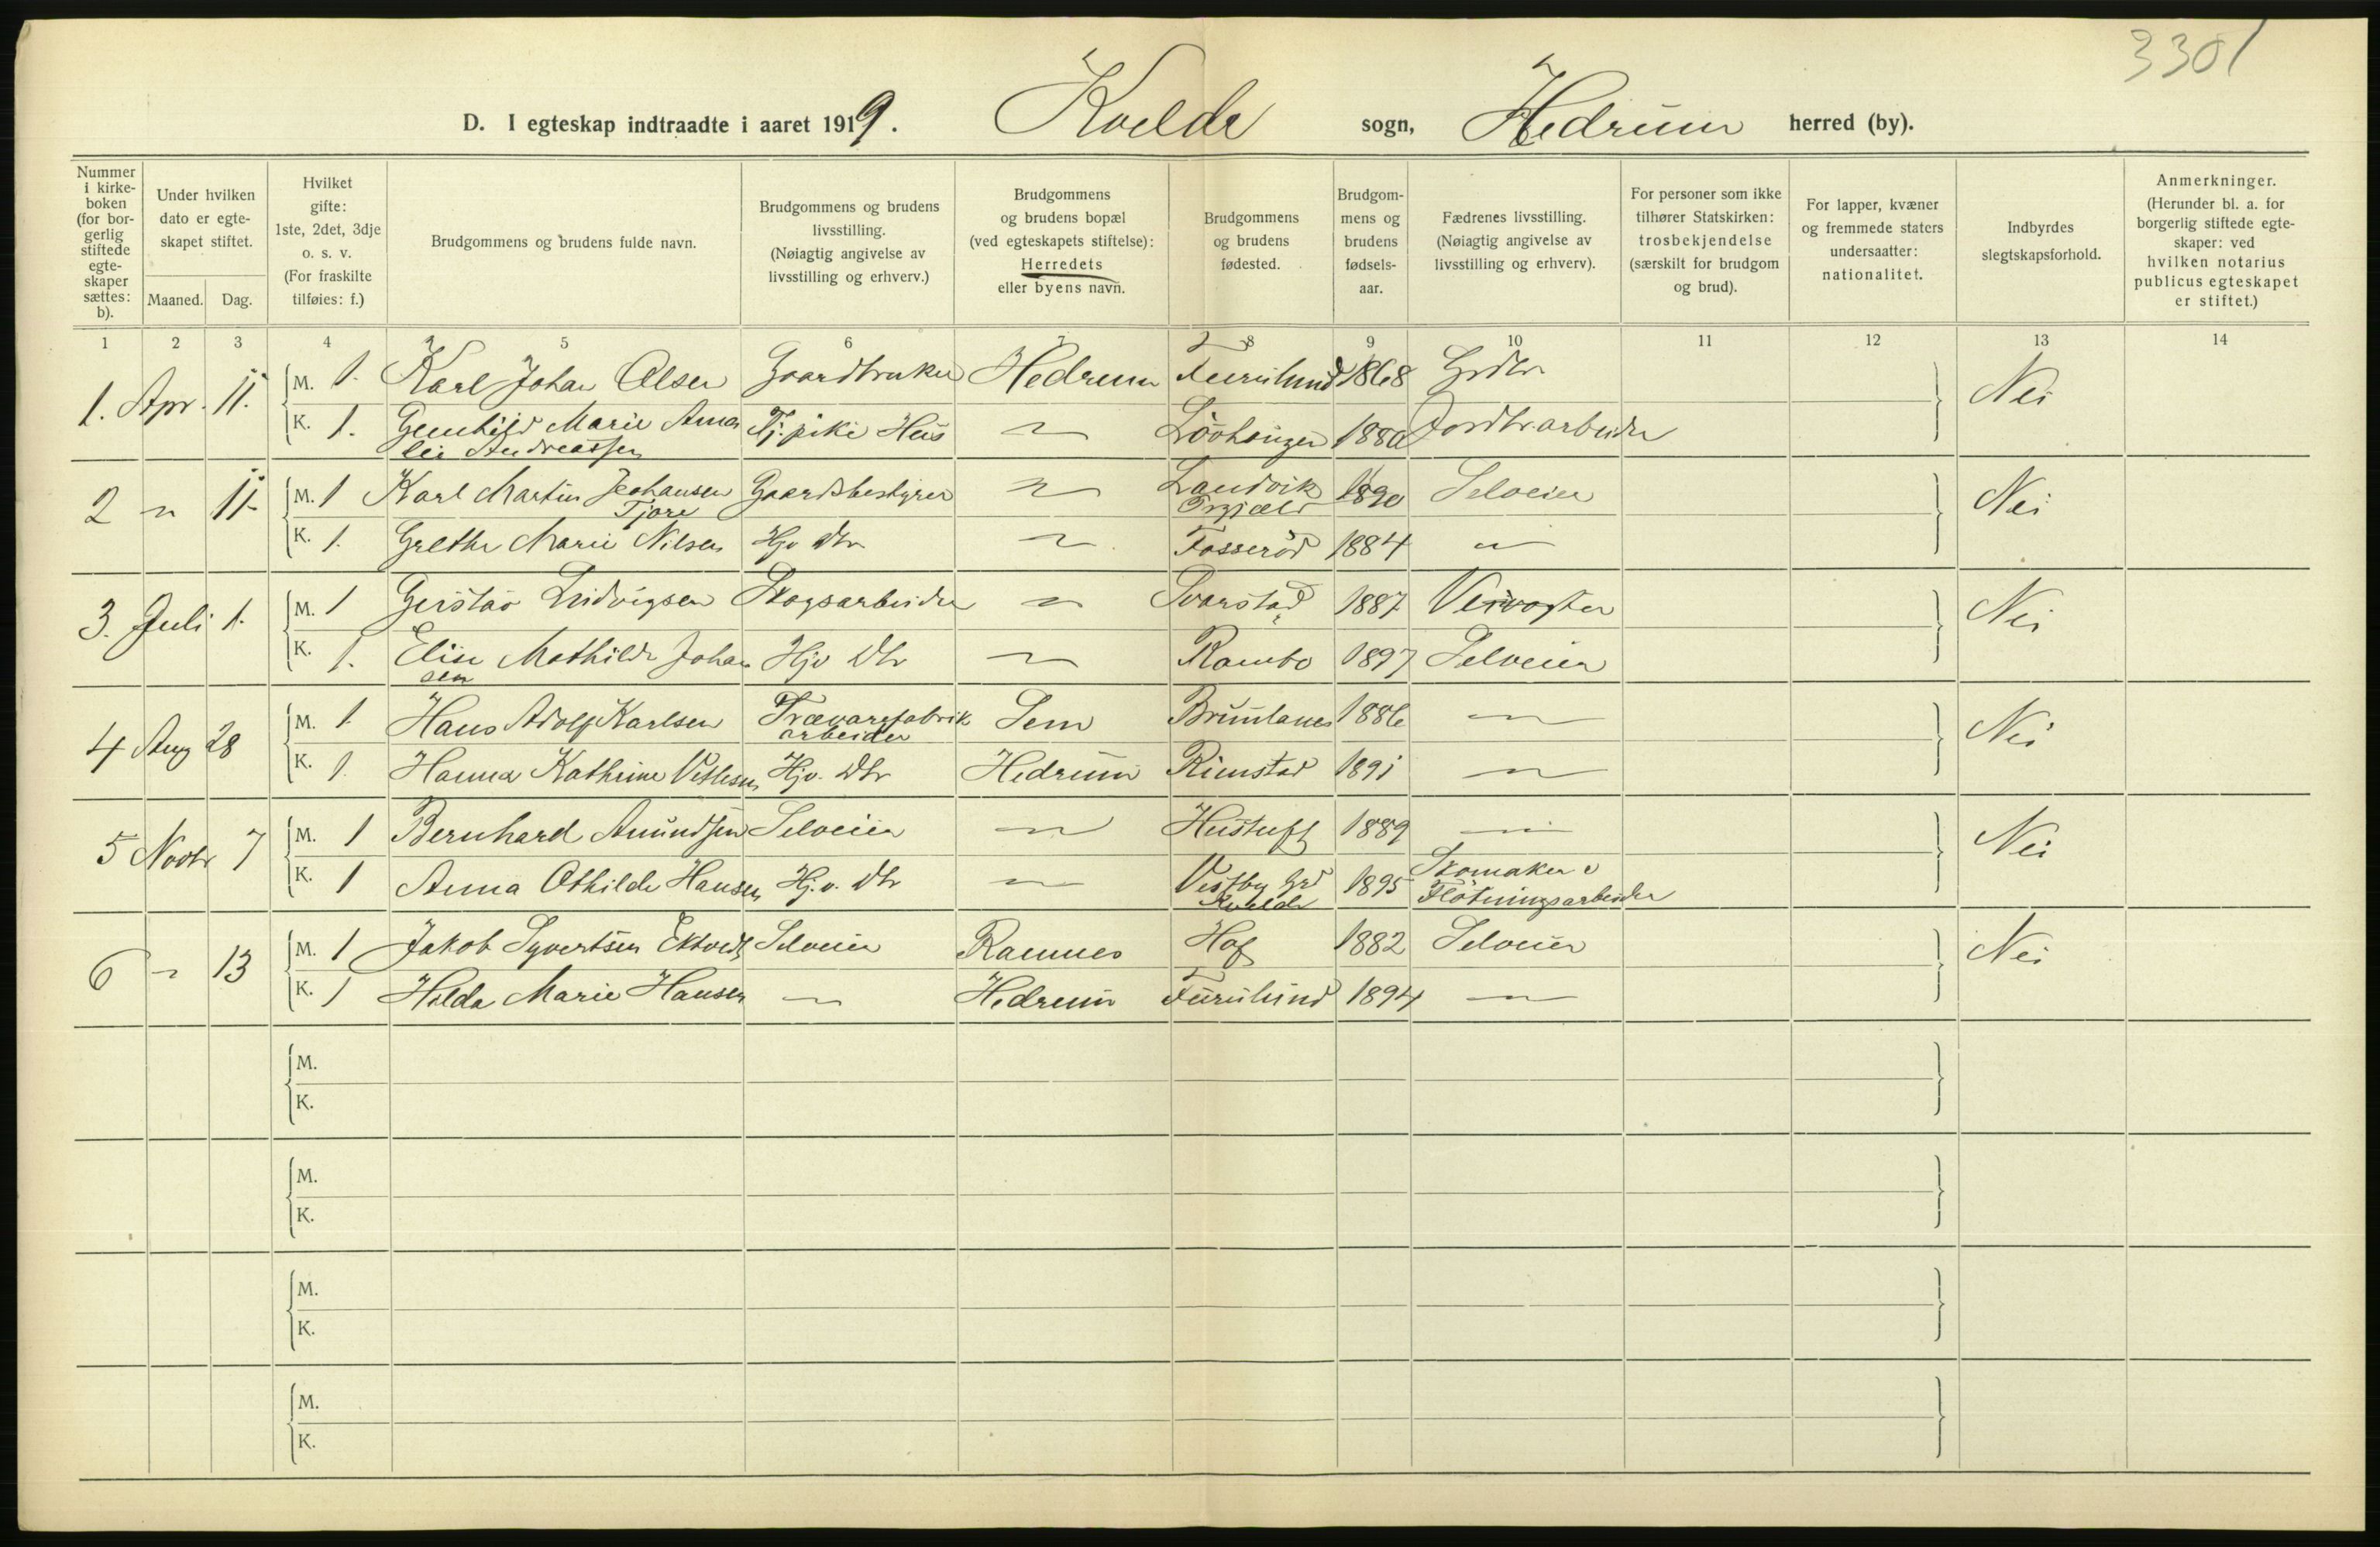 3301
D. I egteskap indtraadte i aaret 1919. Kvelde sogn, Hedrum herred (by).
Nummer i kirkeboken (for borgerlig stiftede egteskaper sættes: b).
Under hvilken dato er egteskapet stiftet.
Maaned. Dag.
Hvilket gifte: 1ste, 2det, 3dje o. s. v. (For fraskilte tilføies: f.)
Brudgommens og brudens fulde navn.
Brudgommens og brudens livsstilling. (Nøiagtig angivelse av livsstilling og erhverv.)
Brudgommens og brudens bopæl (ved egteskapets stiftelse): Herredets eller byens navn.
Brudgommens og brudens fødested.
Brudgommens og brudens fødselsaar.
Fædrenes livsstilling. (Nøiagtig angivelse av livsstilling og erhverv).
For personer som ikke tilhører Statskirken: trosbekjendelse (særskilt for brudgom og brud).
For lapper, kvæner og fremmede staters undersaatter: nationalitet.
Indbyrdes slegtskapsforhold.
Anmerkninger. (Herunder bl. a. for borgerlig stiftede egteskaper: ved hvilken notarius publicus egteskapet er stiftet.)
1 2 3 4 5 6 7 8 9 10 11 12 13 14
1. Apr. 11. M. 1. Karl Johan Olsen Gaardbruker Hedrum Furulund 1868 Grdbr Nei
K. 1. Gunhild Marie Ama Tj. pike Hus " 1880 Jordbr.arbeider
lie Andreassen
2 " 11. M. 1 Karl Martin Johansen Gaardsbestyrer " Landvik 1890 Selveier Nei
Tjore
K. 1. Grethe Marie Nilsen Hjv Dtr " Fosserød 1884 "
3. Juli 1. M. 1 Gustav Ludvigsen Skogsarbeider " Svarstad 1887 Veivogter Nei
K. 1. Elise Mathilde Johan Hjv Dtr " Rambo 1897 Selveier
sen
4 Aug 28 M. 1 Hans Adolf Karlsen Trævarefabrik Sem Brunlanes 1886 " Nei
arbeider
K. 1. Hanna Kathrine Vetlesen Hjv. Dtr Hedrum Rimstad 1891 "
5 Novbr 7 M. 1 Bernhard Amundsen Selveier " Hustuft 1889 " Nei
K. 1 Anna Othilde Hansen Hj.v. Dtr " Vestby Grd 1895 Skomaker o
Kvelde Flötningsarbeider
6 " 13 M. 1 Jakob Syvertsen Ektvedt Selveier Ramnes Hof 1882 Selveier Nei
K. 1 Helda Marie Hansen " Hedrum Furulund 1894 "
M.
K.
M.
K.
M.
K.
M.
K.